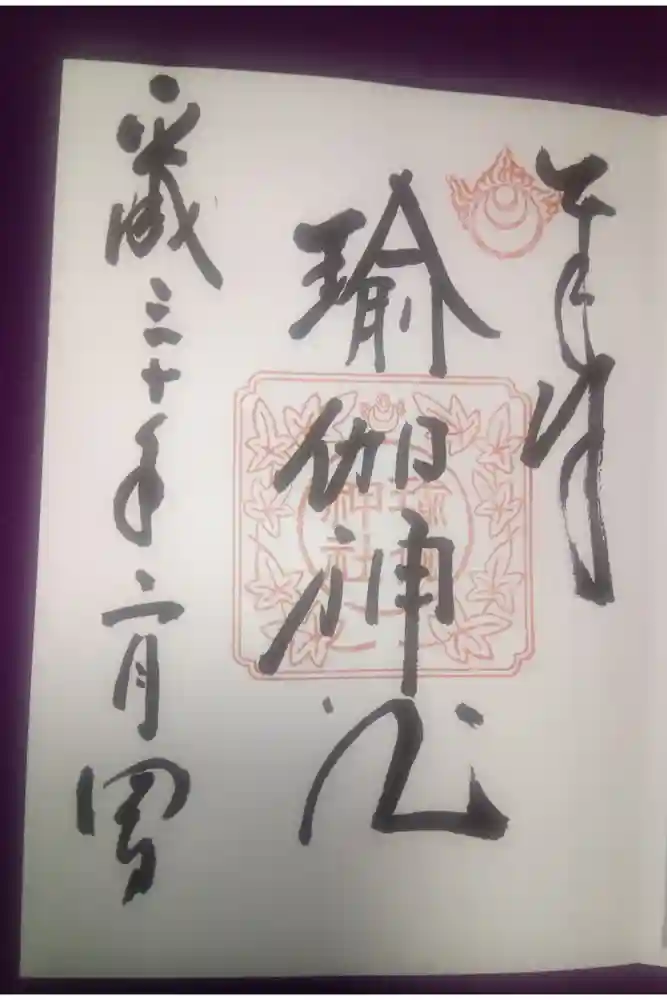 奉拝
瑜伽神社
平成三十年二月四日
瑜伽
神社